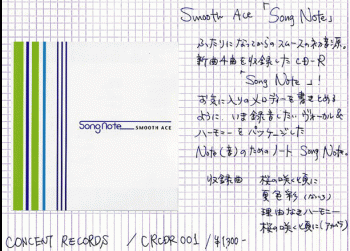 Smooth Ace 「Song Note」
ふたりになってからのスムースの初音源。
新曲4曲を収録したCD-R
「Song Note」!
お気に入りのメロディーを書きとめる
ように、いま録音したいヴォーカル&
ハーモニーをパッケージした
Note(音)のためのノート Song Note。
Song Note SMOOTH ACE
収録曲 桜の咲く頃に
夏色彩
理由なきハーモニー
桜の咲く頃に(アカペラ)
CONCENT RECORDS / CRCDR001 / ¥1300-